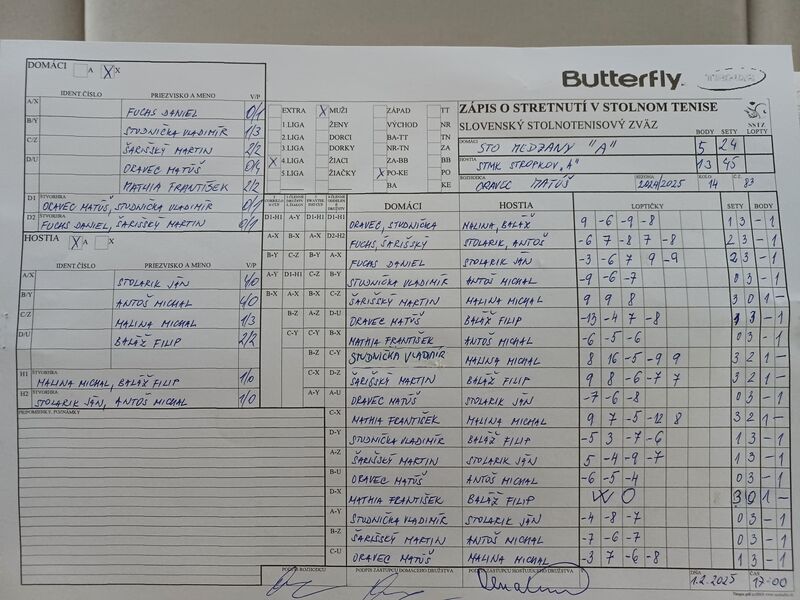 DOMÁCI A X X
IDENT ČÍSLO PRIEZVISKO A MENO V/P
A/X FUCHS DANIEL 0/1
B/Y STUDNIČKA VLADIMÍR 1/3
C/Z ŠARIŠSKÝ MARTIN 2/2
D/U ORAVEC MATÚŠ 0/4
MATHIA FRANTIŠEK 2/2
D1 ŠTVORHRA
ORAVEC MATÚŠ, STUDNIČKA VLADIMÍR 0/1
D2 ŠTVORHRA
FUCHS DANIEL, ŠARIŠSKÝ MARTIN 0/1
HOSTIA X A X
IDENT ČÍSLO PRIEZVISKO A MENO V/P
A/X STOLARIK JÁN 4/0
B/Y ANTOŠ MICHAL 4/0
C/Z MALINA MICHAL 1/3
D/U BALÁŽ FILIP 2/2
H1 ŠTVORHRA
MALINA MICHAL, BALÁŽ FILIP 1/0
H2 ŠTVORHRA
STOLARIK JÁN, ANTOŠ MICHAL 1/0
PRIPOMIENKY, POZNÁMKY
EXTRA X MUŽI ZÁPAD TT
1.LIGA ŽENY VÝCHOD NR
2.LIGA DORCI BA-TT TN
3.LIGA DORKY NR-TN ZA
X 4.LIGA ŽIACI ZA-BB BB
5.LIGA ŽIAČKY X PO-KE PO
BA KE
Butterfly
ZÁPIS O STRETNUTÍ V STOLNOM TENISE
SLOVENSKÝ STOLNOTENISOVÝ ZVÄZ
SSTZ
BODY SETY LOPTY
DOMÁCI STO MEDZANY "A" 5 24
HOSTIA STMK STROPKOV "A" 13 45
ROZHODCA ORAVEC MATÚŠ 2024/2025 KOLO 14 Č.Z. 83
DOMÁCI HOSTIA LOPTIČKY SETY BODY
D1-H1 A-Y D1-H1 D1-H1 ORAVEC, STUDNIČKA MALINA, BALÁŽ 9 -6 -9 -8 1 3 - 1
A-X B-X A-X D2-H2 FUCHS, ŠARIŠSKÝ STOLARIK, ANTOŠ -6 7 -8 7 -8 2 3 - 1
B-Y C-Y B-Y A-X FUCHS DANIEL STOLARIK JÁN -3 -6 7 9 -9 2 3 - 1
A-Y D1-H1 C-Z B-Y STUDNIČKA VLADIMÍR ANTOŠ MICHAL -9 -6 -7 0 3 - 1
B-X A-X B-X C-Z ŠARIŠSKÝ MARTIN MALINA MICHAL 9 9 8 3 0 1 -
B-Y A-Z D-U ORAVEC MATÚŠ BALÁŽ FILIP -13 -4 7 -8 1 3 - 1
C-Y B-X MATHIA FRANTIŠEK ANTOŠ MICHAL -6 -5 -6 0 3 - 1
B-Z C-Y STUDNIČKA VLADIMÍR MALINA MICHAL 8 16 -5 -9 9 3 2 1 -
C-X D-Z ŠARIŠSKÝ MARTIN BALÁŽ FILIP 9 8 -6 -7 7 3 2 1 -
A-Y A-U ORAVEC MATÚŠ STOLARIK JÁN -7 -6 -8 0 3 - 1
C-X MATHIA FRANTIŠEK MALINA MICHAL 9 7 -5 -12 8 3 2 1 -
D-Y STUDNIČKA VLADIMÍR BALÁŽ FILIP -5 3 -7 -6 1 3 - 1
A-Z ŠARIŠSKÝ MARTIN STOLARIK JÁN 5 -4 -9 -7 1 3 - 1
B-U ORAVEC MATÚŠ ANTOŠ MICHAL -6 -5 -4 0 3 - 1
D-X MATHIA FRANTIŠEK BALÁŽ FILIP W O 3 0 1 -
A-Y STUDNIČKA VLADIMÍR STOLARIK JÁN -4 -8 -7 0 3 - 1
B-Z ŠARIŠSKÝ MARTIN ANTOŠ MICHAL -7 -6 -7 0 3 - 1
C-U ORAVEC MATÚŠ MALINA MICHAL -3 7 -6 -8 1 3 - 1
PODPIS ROZHODCU PODPIS ZÁSTUPCU DOMÁCEHO DRUŽSTVA PODPIS ZÁSTUPCU HOSŤUJÚCEHO DRUŽSTVA DŇA 1.2.2025 ČAS 17-00